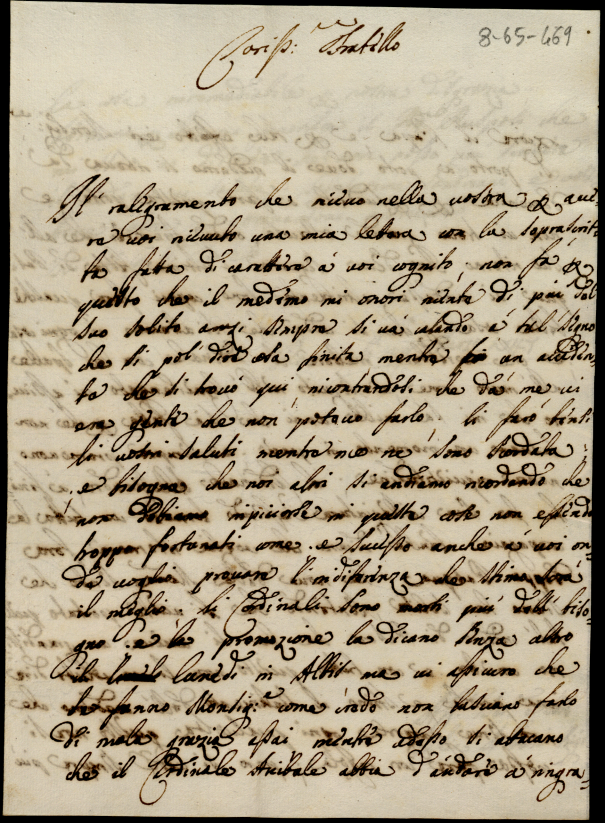 8-65-469
Cariss: Fratello
Il ralegramento che nicuo nella vostra p aue
re voi riceuuto una mia lettera con la soprascrit
ta fatta di carattere à voi cognito, non fà p
questo che il medemo mi onori niente di più del
suo solito anzi sempre si và calando à tal segno
che si pol dire cosa finita mentre un acciden
te che si trouò qui rincontrandosi che dà me ui
era gente che non poteuo farlo. li farò tenti
li vostri saluti mentre me ne sono scordata
e bisogna che noi altri si andiamo ricordando che
non dobiamo in queste cose non essendo
troppo fortunati come è sucesso anche à uoi on
de voglio prouare l'indiferenza che stimo sarà
il meglio. li Cardinali sono morti più dell biso
gno e la promozione la dicano senza altro
il lunedì in Albis ma ui assicuro che
se fanno Monsig:re come credo non lasciano farlo
di mala grazia assai mentre adesso si
che il Cardinale Anibale abbia d'andare à ringra